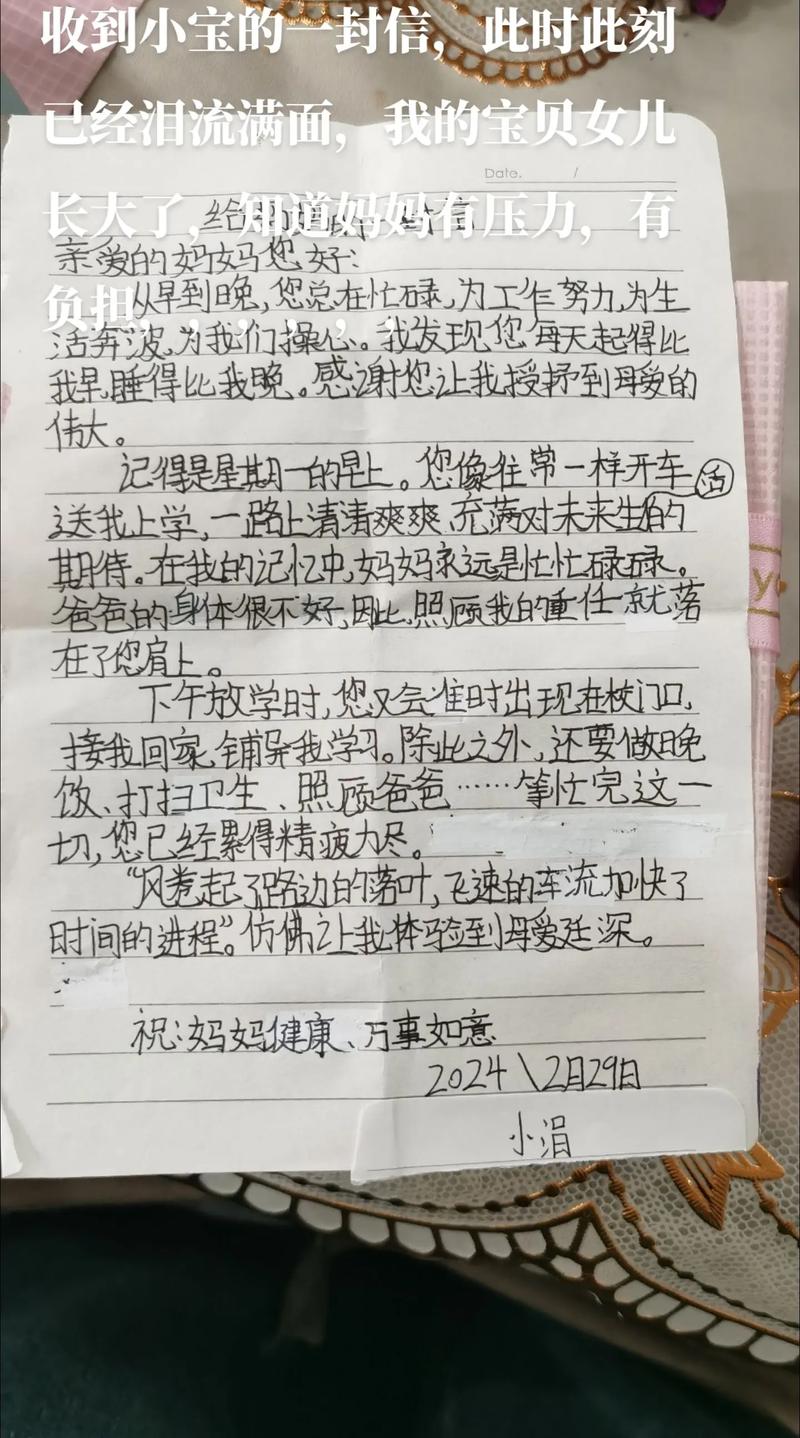 收到小宝的一封信，此时此刻
已经泪流满面，我的宝贝女儿
长大了，知道妈妈有压力，有
负担，，，，，，
Date. /
给妈妈的一封信
亲爱的妈妈您好：
从早到晚，您总在忙碌，为工作努力，为生
活奔波，为我们操心。我发现您每天起得比
我早，睡得比我晚。感谢您让我授抒到母爱的
伟大。
记得是星期一的早上。您像往常一样开车
送我上学，一路上清清爽爽，充满对未来生活的
期待。在我的记忆中，妈妈永远是忙忙碌碌。
爸爸的身体很不好，因此，照顾我的重任就落
在了您肩上。
下午放学时，您又会准时出现在校门口，
接我回家，铺导我学习。除此之外，还要做晚
饭、打扫卫生、照顾爸爸……等忙完这一
切，您已经累得精疲力尽。
“风惹起了路边的落叶，飞速的车流加快了
时间的进程”。仿佛让我体验到母爱廷深。
祝：妈妈健康、万事如意
2024\2月29日
小涓